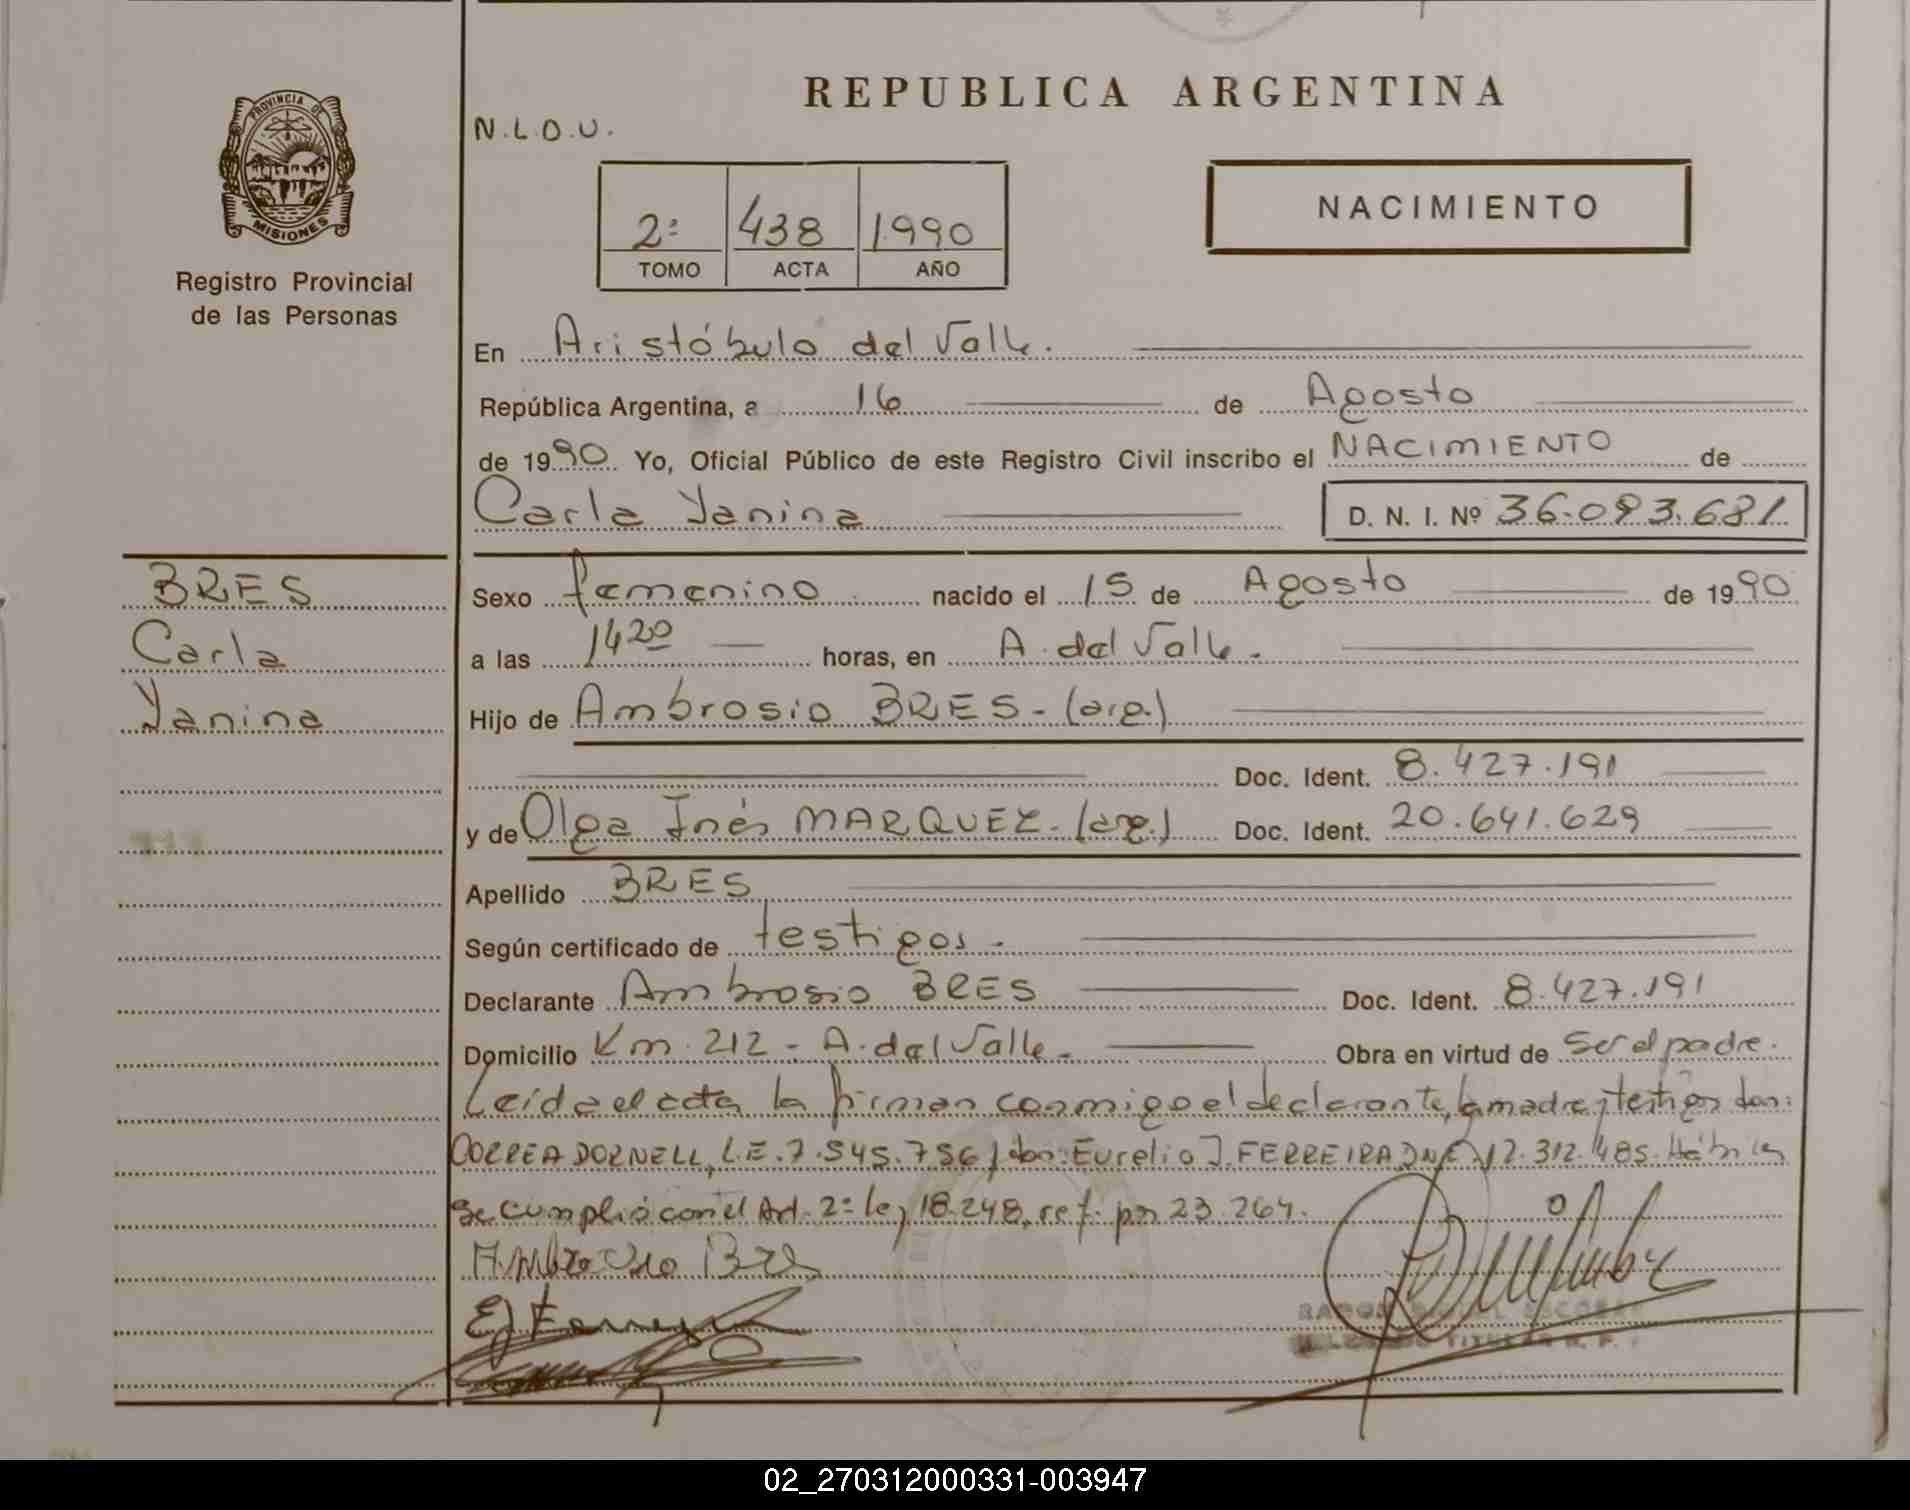 REPUBLICA ARGENTINA
PROVINCIA DE
MISIONES
Registro Provincial
de las Personas
N.L.O.U.
2º 438 1990
TOMO ACTA AÑO
NACIMIENTO
En Aristóbulo del Valle.
República Argentina, a 16 de Agosto
de 1990 Yo, Oficial Público de este Registro Civil inscribo el NACIMIENTO de
Carla Yanina D. N. I. Nº 36.093.681
BRES
Carla
Yanina
Sexo femenino nacido el 15 de Agosto de 1990
a las 14 20 horas, en A. del Valle.
Hijo de Ambrosio BRES - (arg.)
Doc. Ident. 8.427.191
y de Olga Inés MARQUEZ - (arg.) Doc. Ident. 20.641.629
Apellido BRES
Según certificado de testigos.
Declarante Ambrosio BRES Doc. Ident. 8.427.191
Domicilio Km. 212 - A. del Valle. Obra en virtud de Ser el padre.
Leída el acta la firman conmigo el declarante, la madre y testigos don:
CORREA DORNELL, L.E. 7.545.756 y don: Eurelio J. FERREIRA DNI 12.312.485. Hábiles
Se cumplió con el Art. 2º ley 18.248, ref. por 23.264.
Ambrosio Bres
EJ Ferreira
ESCOBAR
TITULAR R. P.
02_270312000331-003947